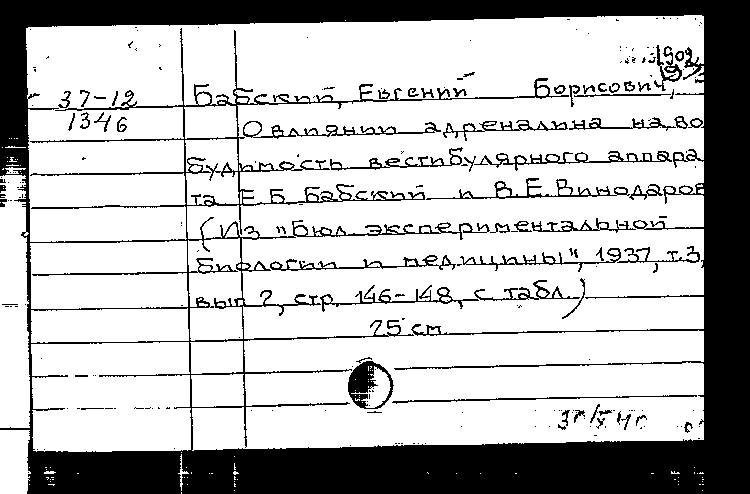 1902
37-12
1346
Бабский, Евгений Борисович,
О влиянии адреналина на во
будимость вестибулярного аппара
та Е.Б. Бабский и В.Е. Винодаров
(Из "Бюл. экспериментальной
биологии и медицины", 1937, т.3,
вып 2, стр. 146-148, с табл.)
25 см